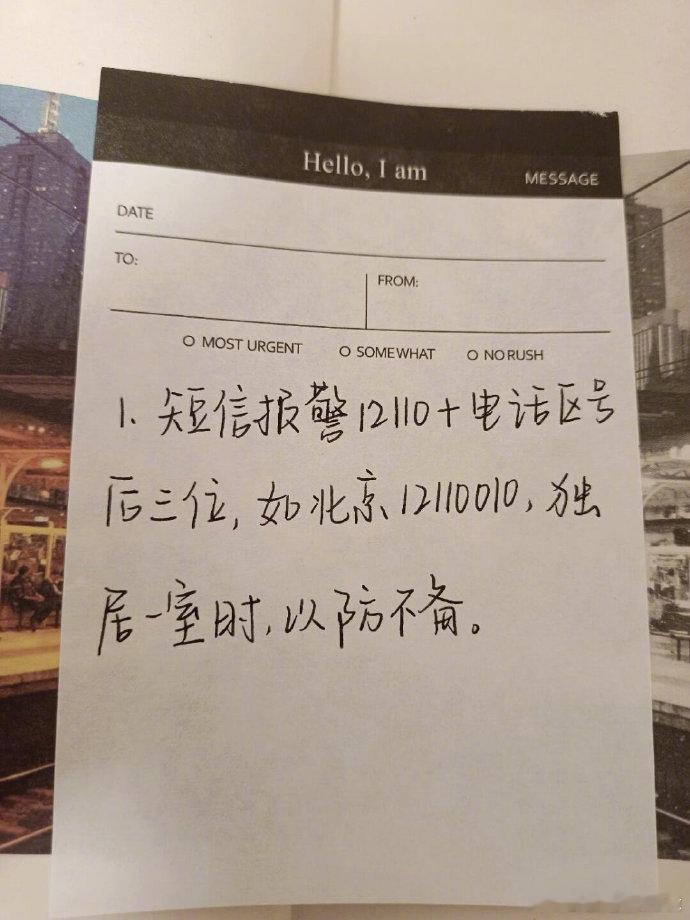 Hello, I am
MESSAGE
DATE
TO:
FROM:
O MOST URGENT
O SOMEWHAT
O NO RUSH
1. 短信报警12110+电话区号
后三位,如北京12110010,独
居一室时,以防不备。